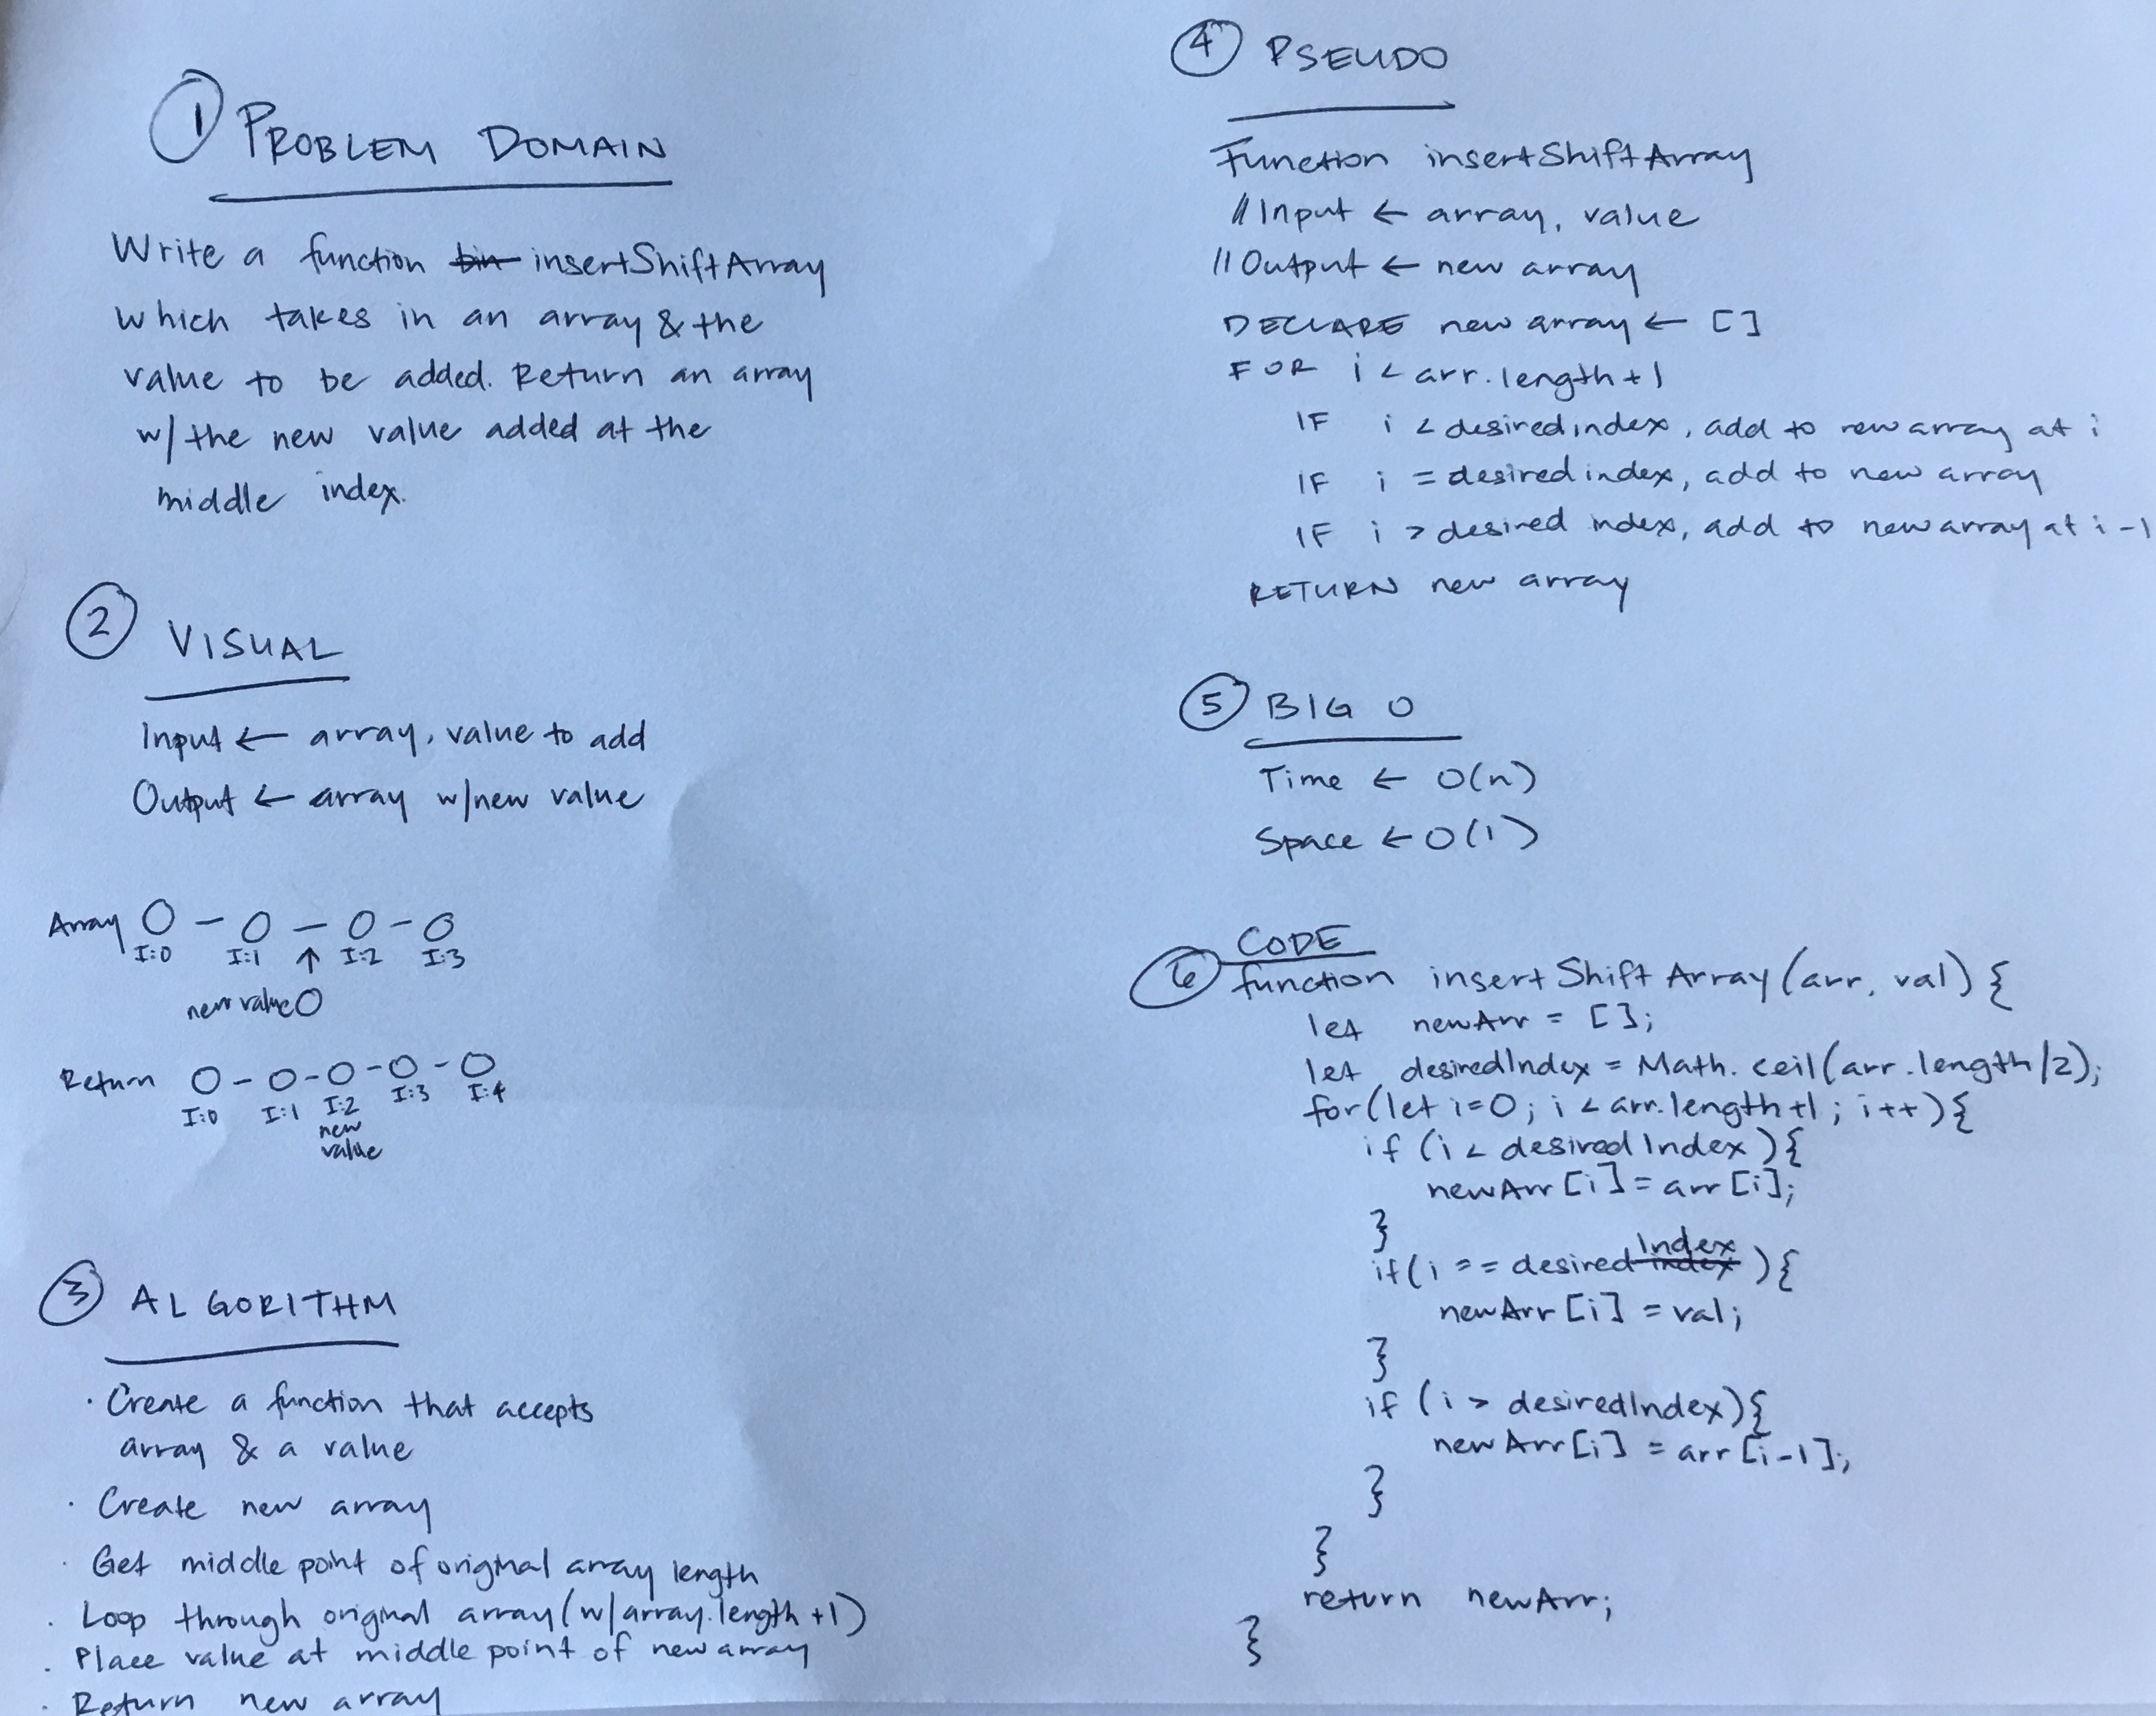 ① PROBLEM DOMAIN
Write a function bin insertShiftArray
which takes in an array & the
value to be added. Return an array
w/ the new value added at the
middle index.
② VISUAL
Input ← array, value to add
Output ← array w/new value
Array O - O - O - O
I:0 I:1 ↑ I:2 I:3
new value O
Return O - O - O - O - O
I:0 I:1 I:2 I:3 I:4
new
value
③ ALGORITHM
· Create a function that accepts
array & a value
· Create new array
· Get middle point of original array length
· Loop through original array (w/array.length +1)
· Place value at middle point of new array
· Return new array
④ PSEUDO
Function insertShiftArray
// Input ← array, value
// Output ← new array
DECLARE new array ← []
FOR i < arr.length+1
IF i < desired index, add to new array at i
IF i = desired index, add to new array
IF i > desired index, add to new array at i -1
RETURN new array
⑤ BIG O
Time ← O(n)
Space ← O(1)
⑥ CODE
function insertShiftArray(arr, val) {
let newArr = [];
let desiredIndex = Math.ceil(arr.length/2);
for(let i=0; i < arr.length+1; i++){
if (i < desiredIndex){
newArr[i] = arr[i];
}
if(i == desired index Index){
newArr[i] = val;
}
if (i > desiredIndex){
newArr[i] = arr[i-1];
}
}
return newArr;
}